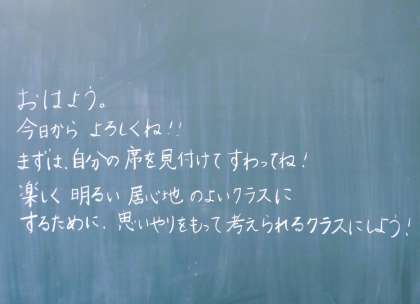 おはよう。
今日から よろしくね!!
まずは、自分の席を見付けて すわってね!
楽しく 明るい 居心地 のよいクラスに
するために、思いやりをもって考えられるクラスにしよう!